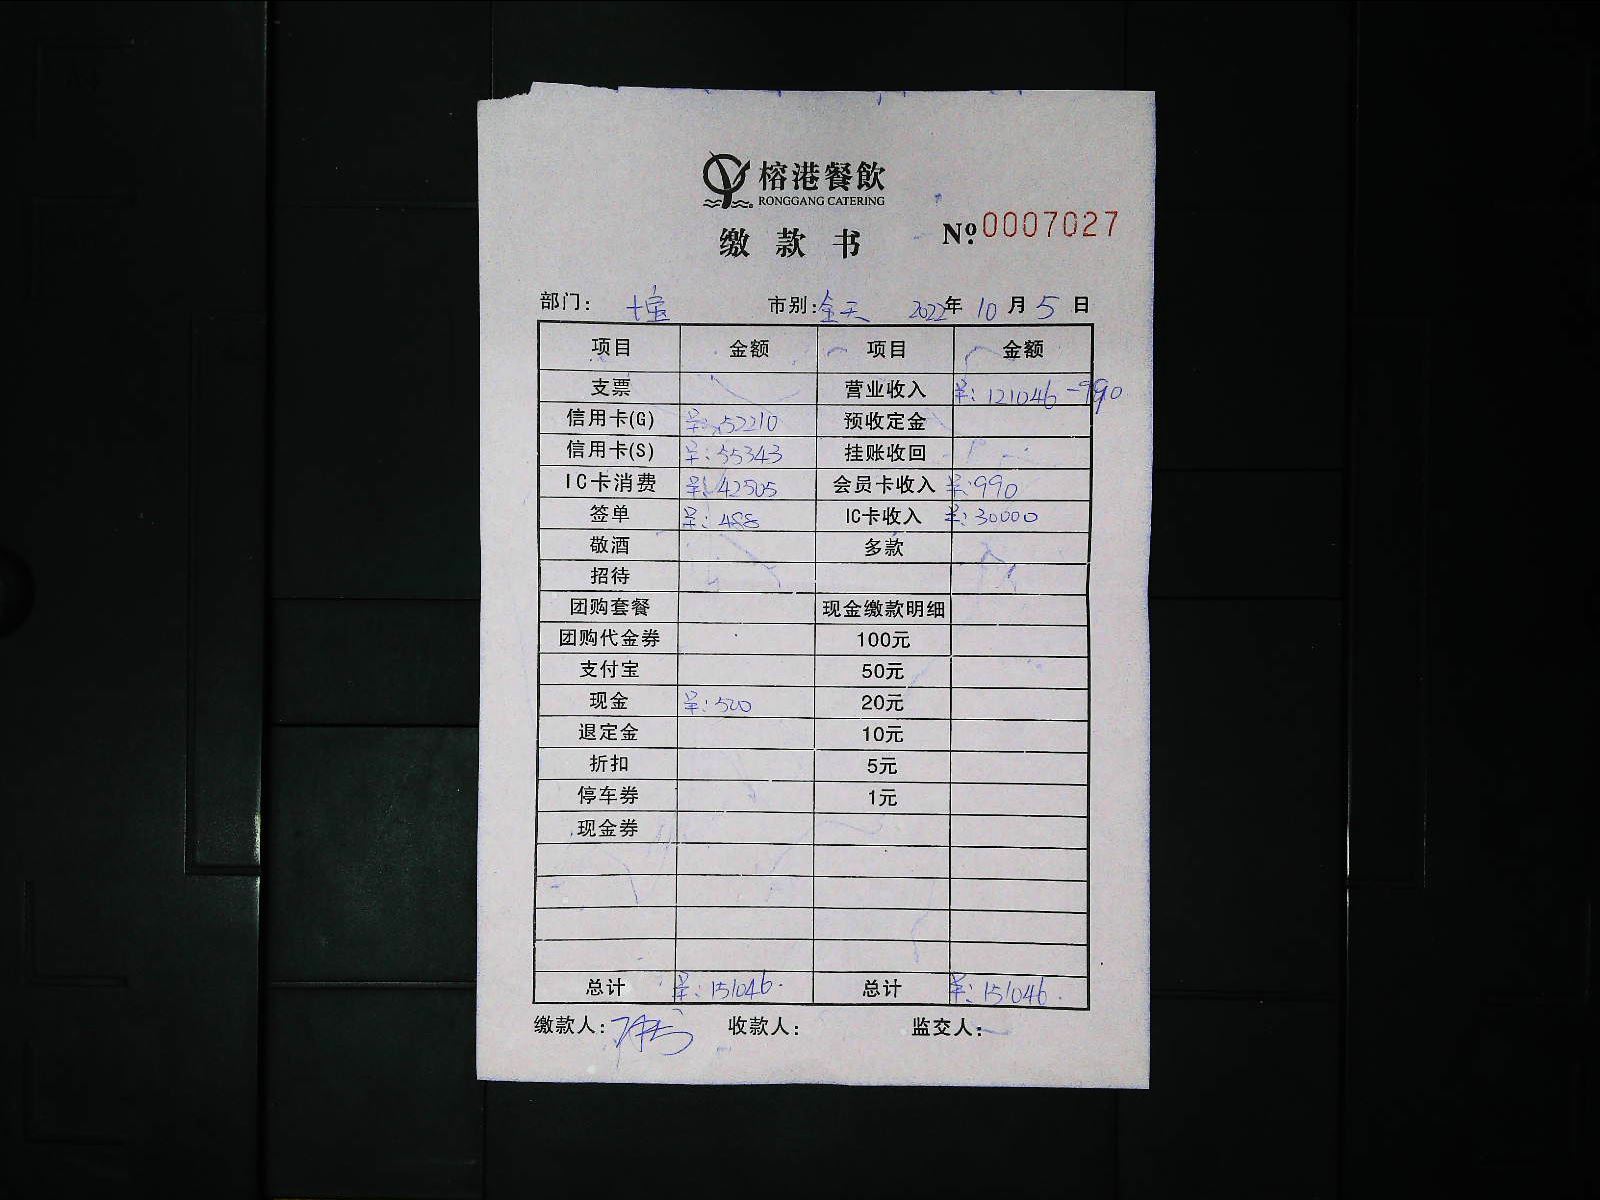 榕港餐飲
RONGGANG CATERING
缴款书
№ 0007027
部门: 市别:全天 2022年10月5日
项目 金额 项目 金额
支票 营业收入 ¥:121046-990
信用卡(G) ¥:52210 预收定金
信用卡(S) ¥:55343 挂账收回
IC卡消费 ¥:42505 会员卡收入 ¥:990
签单 ¥:488 IC卡收入 ¥:30000
敬酒 多款
招待
团购套餐 现金缴款明细
团购代金券 100元
支付宝 50元
现金 ¥:500 20元
退定金 10元
折扣 5元
停车券 1元
现金券
总计 ¥:151046. 总计 ¥:151046.
缴款人: 收款人: 监交人: